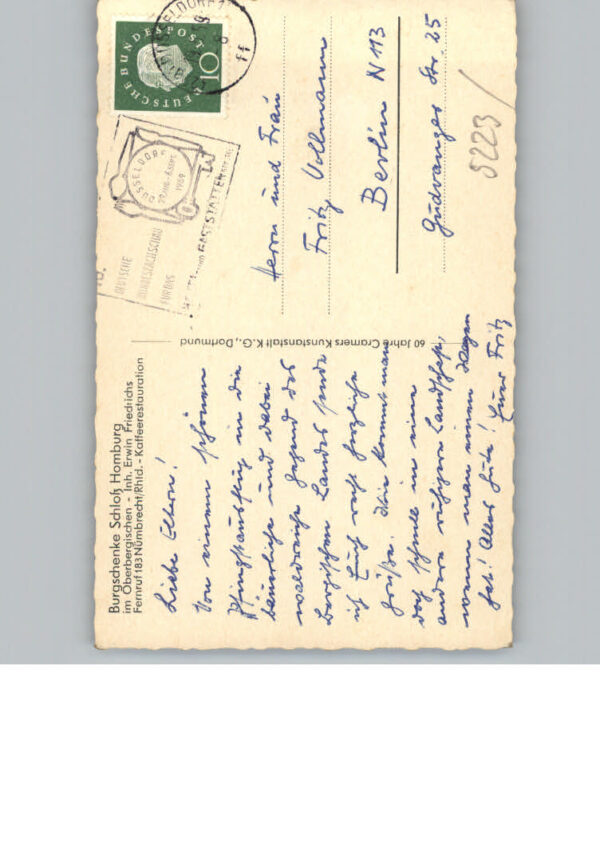 Burgschenke Schloß Homburg
im Oberbergischen - Inh. Erwin Friedrichs
Fernruf 183 Nümbrecht/Rhld. - Kaffeerestauration
Liebe Eltern!
Von einem schönen
Pfingstausflug in die
bäuerliche und dabei
waldreiche Gegend des
Bergischen Landes sende
ich Euch recht herzliche
Grüße. Hier kommt man
doch schnell in eine
andere ruhigere Landschaft,
wenn man einen Wagen
hat! Alles Gute! Euer Fritz
60 Jahre Cramers Kunstanstalt K.G., Dortmund
DEUTSCHE BUNDESPOST
10
DÜSSELDORF
DÜSSELDORF
1959
DEUTSCHE
BUNDESFACHSCHAU
FÜR DAS
UND GASTSTÄTTEN
Herrn und Frau
Fritz Vollmann
Berlin N 113
Gudvanger Str. 25
5223/